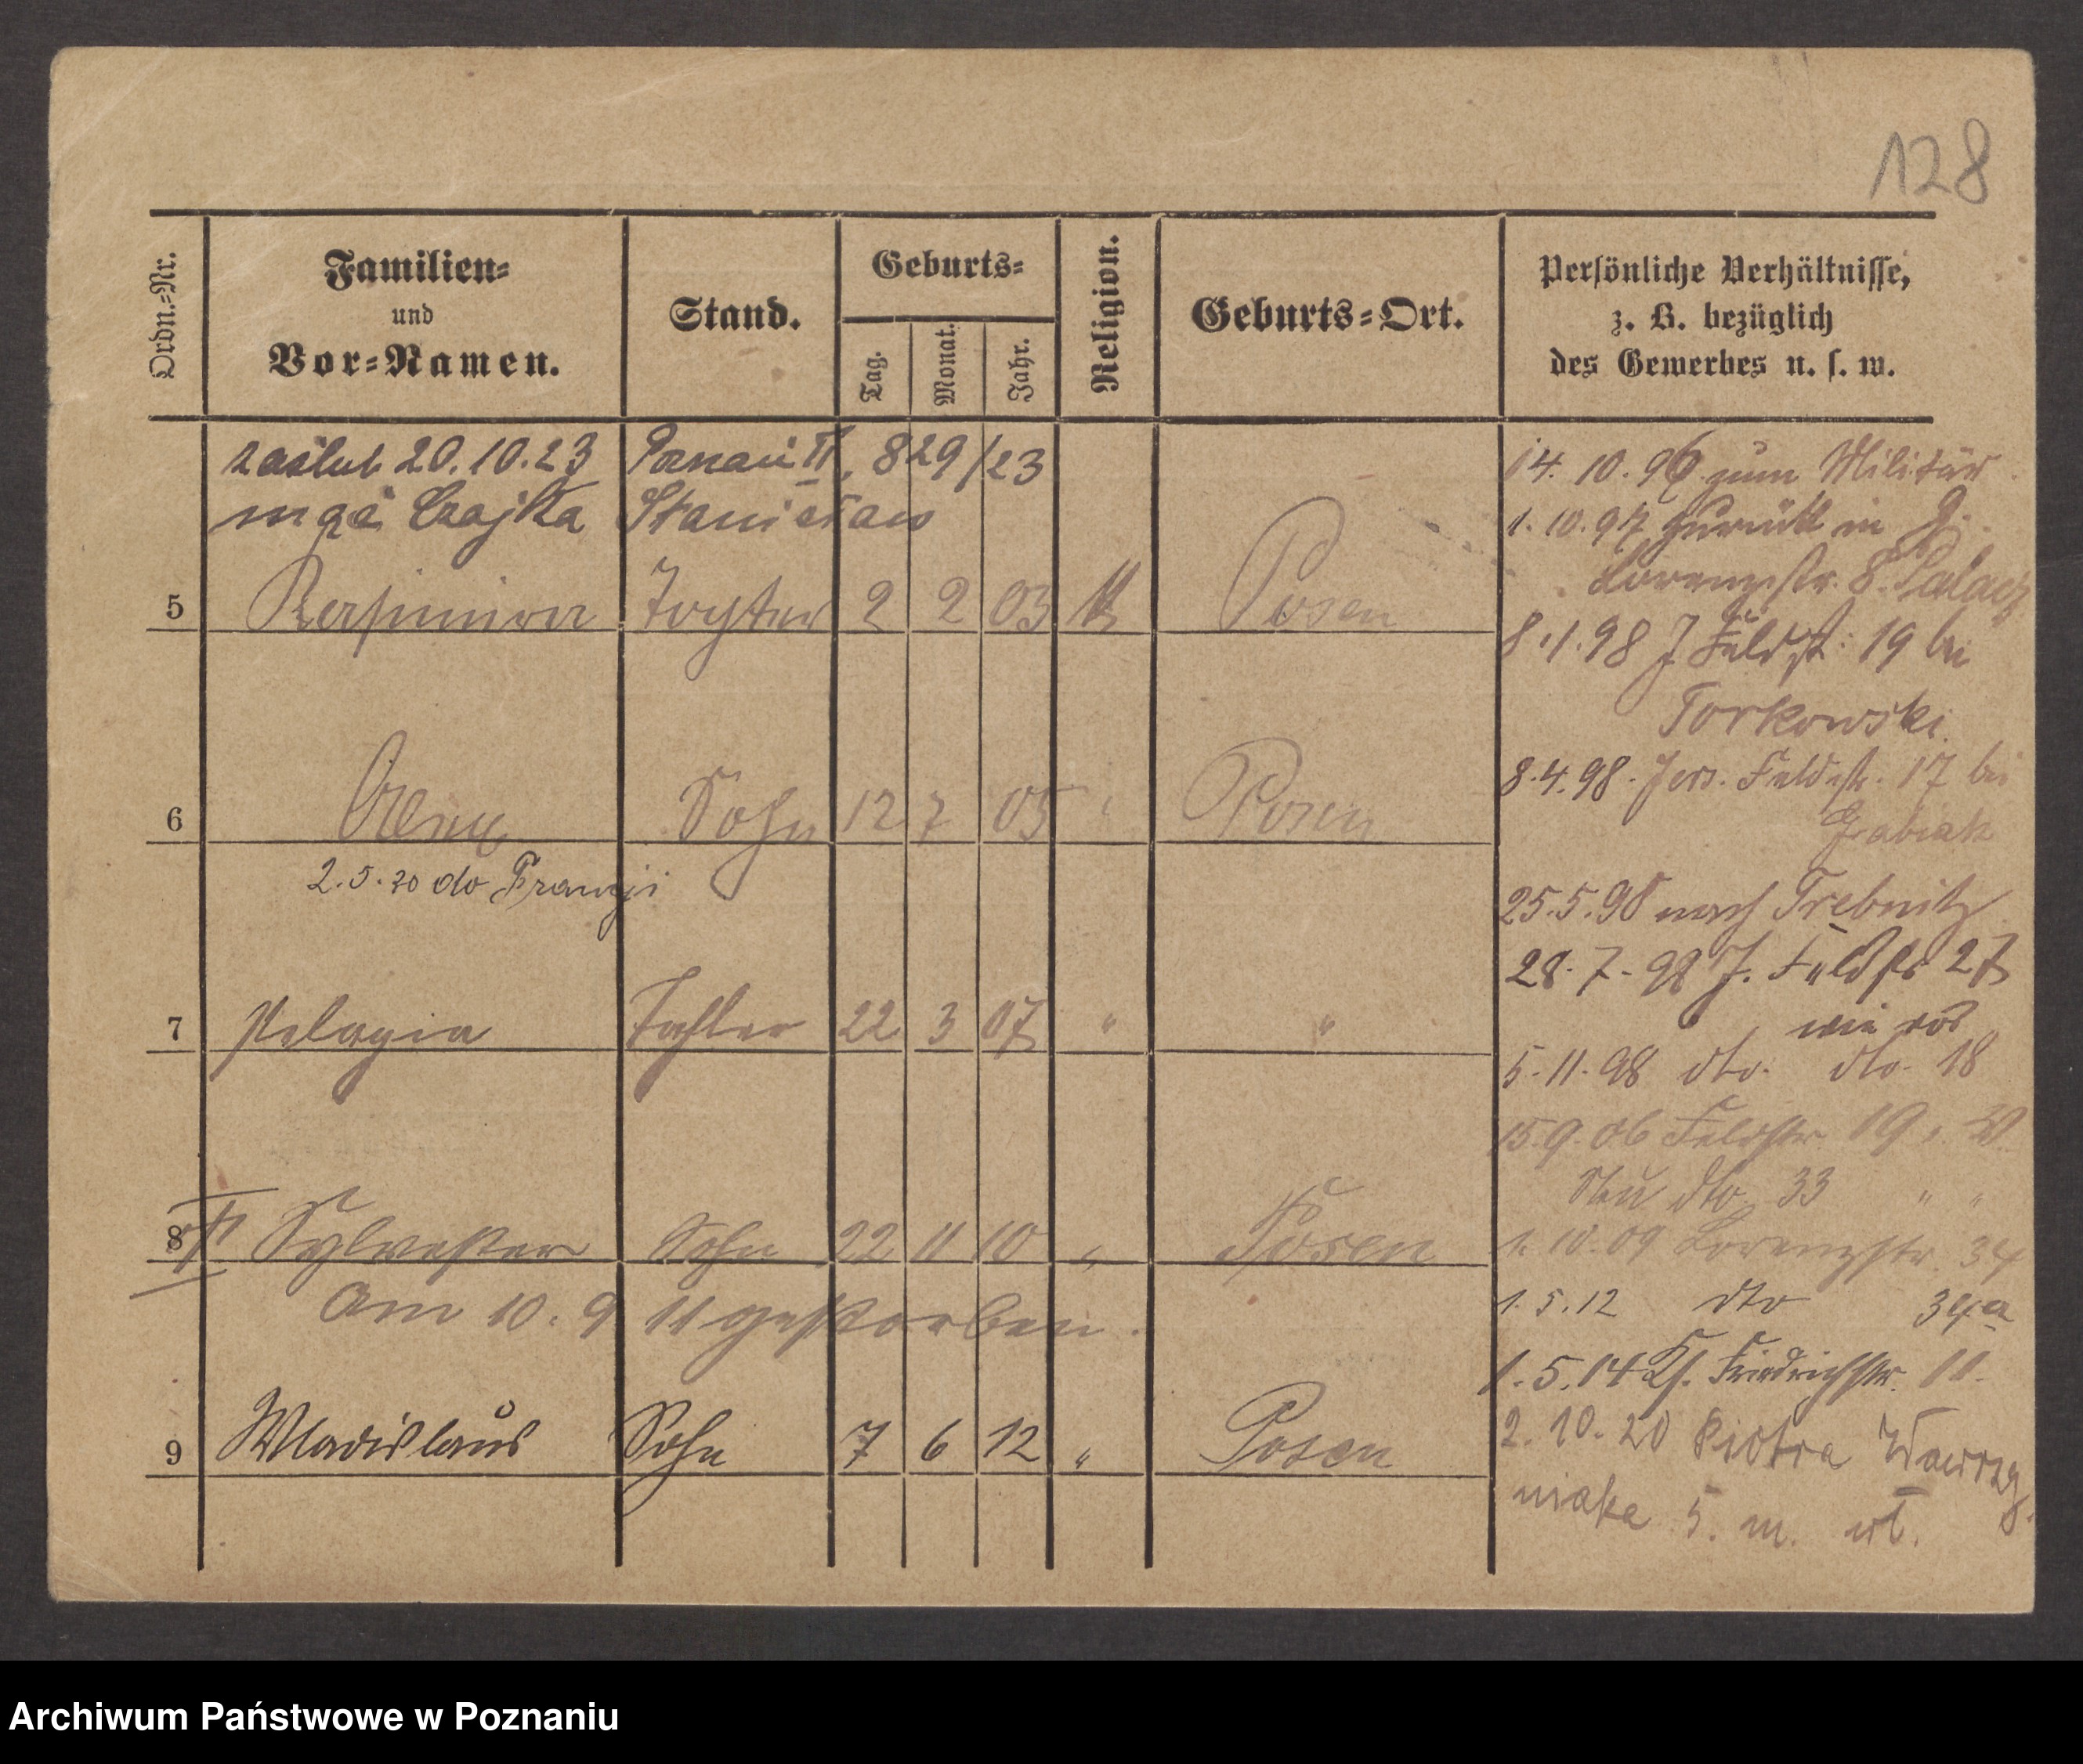 128
Ordn.-Nr.
Familien-
und
Vor-Namen.
Stand.
Geburts-
Tag.
Monat.
Jahr.
Religion.
Geburts-Ort.
Persönliche Verhältnisse,
z. B. bezüglich
des Gewerbes u. s. w.
zaślub 20.10.23 Poznań II, 829/23
mąż Czajka Stanisław
5 Tochter 2 2 03 K Posen
6 Sohn 12 7 05 " Posen
2.5.20 do Francji
7 Pelagia Tochter 22 3 07 " "
8 Sylvester Sohn 22 11 10 " Posen
Am 10.9 11 gestorben.
9 Wladislaus Sohn 7 6 12 " Posen
14.10.96 zum Militär
1.10.97 zurück in J.
Lorenzstr. 8.
8.1.98 J Feldst. 19 bei
Torkowski
8.4.98. Jers. Feldstr. 17 bei
Grabiak
25.5.98 nach Trebnitz
28.7.98 J. Feldstr 27
wie vor
5.11.98 dto. dto. 18
15.9.06 Feldstr. 19,
Neu dto. 33 " "
1.10.09 Lorenzstr. 34
1.5.12 dto 34a
1.5.14 Ks. Friedrichstr. 11.
2.10.20 Piotra Wawrzy
niaka 5. m. wł.
Archiwum Państwowe w Poznaniu